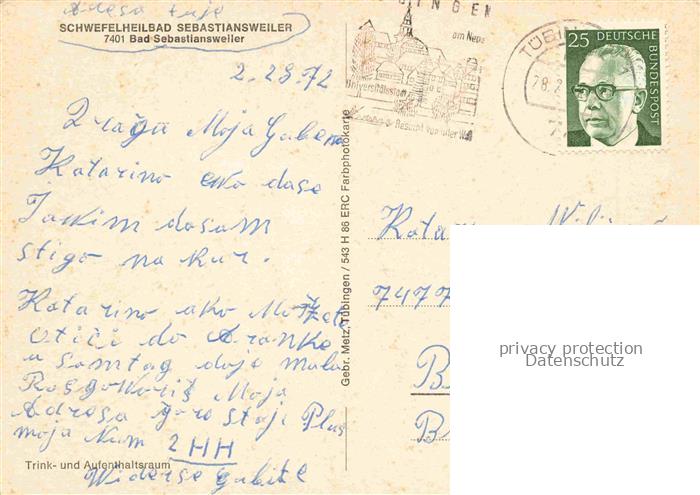 Adesa tuje
SCHWEFELHEILBAD SEBASTIANSWEILER
7401 Bad Sebastiansweiler
2.28.72
Draga Moja Gabena
Katarino evo dase
Javim dasam
stigo na kur.
Katarino ako Možete
otići do Aranke
u Samtag doje malo
Rosgovoriš Moja
Adresa Goro stoji Plus
moja Num 2 HH
Widerse Gabite
Trink- und Aufenthaltsraum
Gebr. Metz, Tübingen / 543 H 86 ERC Farbphotokarte
BINGEN
am Neckar
Universitätsstadt
Besucht von aller Welt
TÜBIN
28.2
25 DEUTSCHE BUNDESPOST
Kata
7477
B
B
privacy protection
Datenschutz